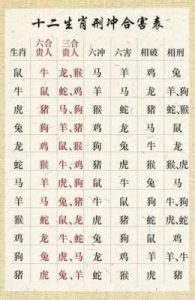 十二生肖刑冲合害表
生肖 六合贵人 三合贵人 六冲 六害 相破 相刑
鼠 牛 龙、猴 马 羊 鸡 兔
牛 鼠 蛇、鸡 羊 马 龙 羊、狗
虎 猪 马、狗 猴 蛇 猪 蛇、猴
兔 狗 羊、猪 鸡 龙 马 鼠
龙 鸡 鼠、猴 狗 兔 牛 龙
蛇 猴 牛、鸡 猪 虎 猴 虎、猴
马 羊 虎、狗 鼠 牛 兔 马
羊 马 兔、猪 牛 鼠 狗 牛、狗
猴 蛇 鼠、龙 虎 猪 蛇 虎、蛇
鸡 龙 牛、蛇 兔 狗 鼠 鸡
狗 兔 虎、马 龙 鸡 羊 牛、羊
猪 虎 兔、羊 蛇 猴 虎 猪